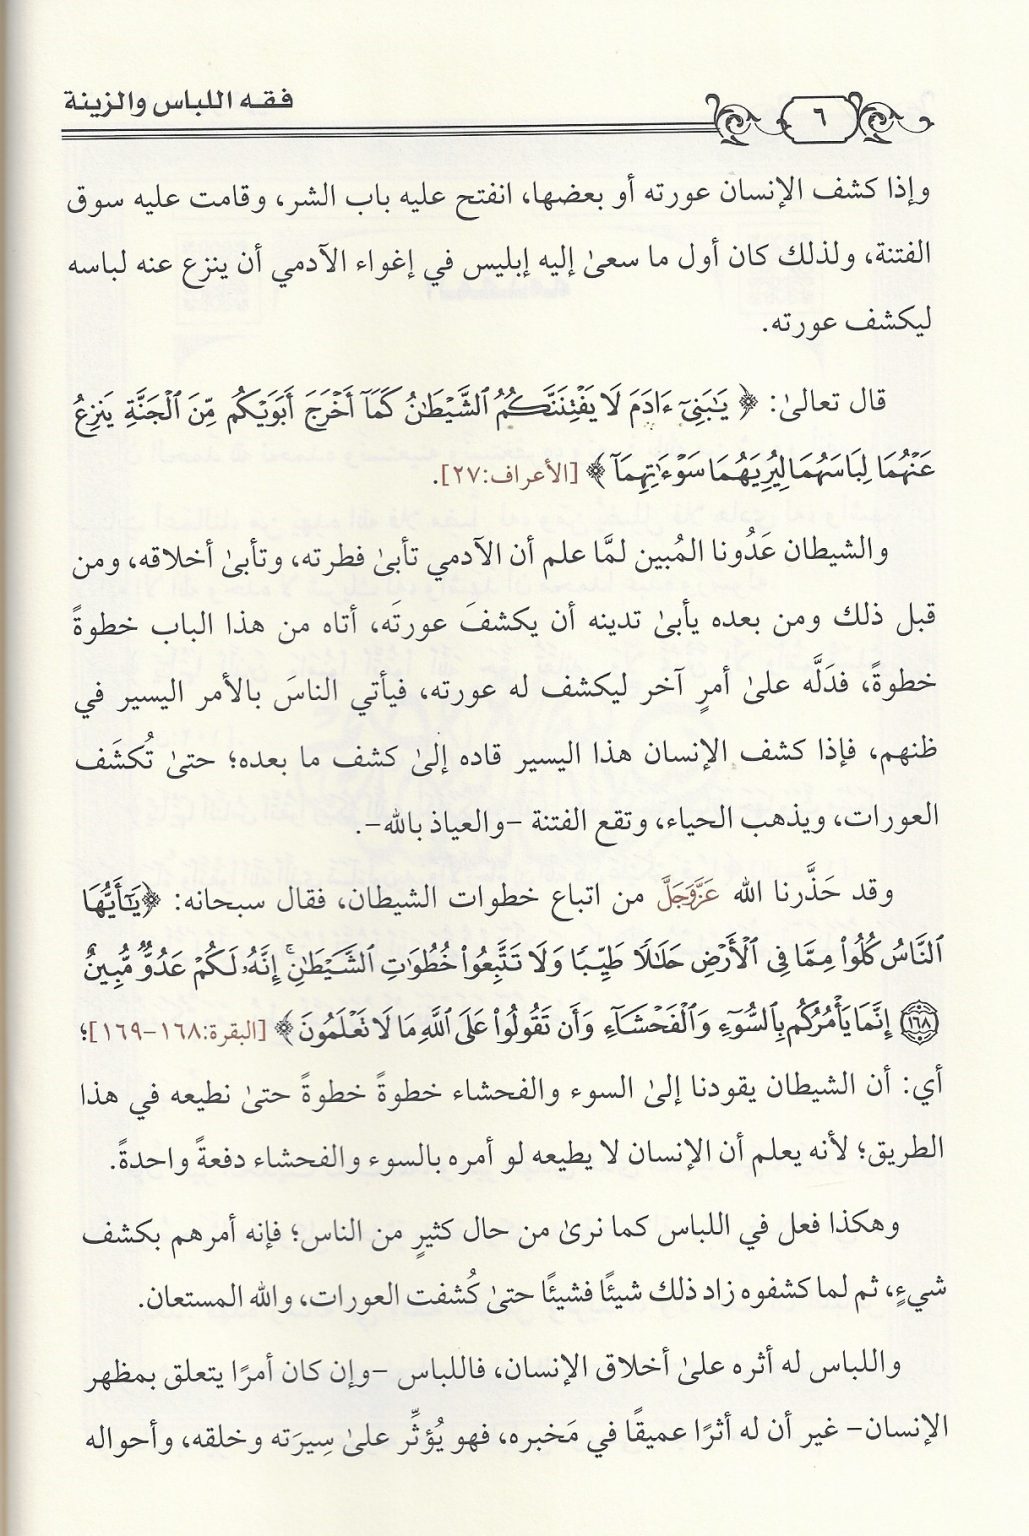 فقه اللباس والزينة
٦
وإذا كشف الإنسان عورته أو بعضها، انفتح عليه باب الشر، وقامت عليه سوق
الفتنة، ولذلك كان أول ما سعىٰ إليه إبليس في إغواء الآدمي أن ينزع عنه لباسه
ليكشف عورته.
قال تعالىٰ: ﴿ يَٰبَنِيٓ ءَادَمَ لَا يَفۡتِنَنَّكُمُ ٱلشَّيۡطَٰنُ كَمَآ أَخۡرَجَ أَبَوَيۡكُم مِّنَ ٱلۡجَنَّةِ يَنزِعُ
عَنۡهُمَا لِبَاسَهُمَا لِيُرِيَهُمَا سَوۡءَٰتِهِمَآ ﴾ [الأعراف:٢٧].
والشيطان عَدُونا المُبين لمَّا علم أن الآدمي تأبىٰ فطرته، وتأبىٰ أخلاقه، ومن
قبل ذلك ومن بعده يأبىٰ تدينه أن يكشفَ عورتَه، أتاه من هذا الباب خطوةً
خطوةً، فدَلَّه علىٰ أمرٍ آخر ليكشف له عورته، فيأتي الناسَ بالأمر اليسير في
ظنهم، فإذا كشف الإنسان هذا اليسير قاده إلىٰ كشف ما بعده؛ حتىٰ تُكشَف
العورات، ويذهب الحياء، وتقع الفتنة –والعياذ بالله–.
وقد حَذَّرنا الله عَزَّوَجَلَّ من اتباع خطوات الشيطان، فقال سبحانه: ﴿يَٰٓأَيُّهَا
ٱلنَّاسُ كُلُواْ مِمَّا فِي ٱلۡأَرۡضِ حَلَٰلٗا طَيِّبٗا وَلَا تَتَّبِعُواْ خُطُوَٰتِ ٱلشَّيۡطَٰنِۚ إِنَّهُۥ لَكُمۡ عَدُوّٞ مُّبِينٌ
١٦٨ إِنَّمَا يَأۡمُرُكُم بِٱلسُّوٓءِ وَٱلۡفَحۡشَآءِ وَأَن تَقُولُواْ عَلَى ٱللَّهِ مَا لَا تَعۡلَمُونَ ﴾ [البقرة:١٦٨–١٦٩]؛
أي: أن الشيطان يقودنا إلىٰ السوء والفحشاء خطوةً خطوةً حتىٰ نطيعه في هذا
الطريق؛ لأنه يعلم أن الإنسان لا يطيعه لو أمره بالسوء والفحشاء دفعةً واحدةً.
وهكذا فعل في اللباس كما نرىٰ من حال كثيرٍ من الناس؛ فإنه أمرهم بكشف
شيءٍ، ثم لما كشفوه زاد ذلك شيئًا فشيئًا حتىٰ كُشفت العورات، والله المستعان.
واللباس له أثره علىٰ أخلاق الإنسان، فاللباس –وإن كان أمرًا يتعلق بمظهر
الإنسان– غير أن له أثرًا عميقًا في مَخبره، فهو يُؤثِّر علىٰ سِيرَته وخلقه، وأحواله